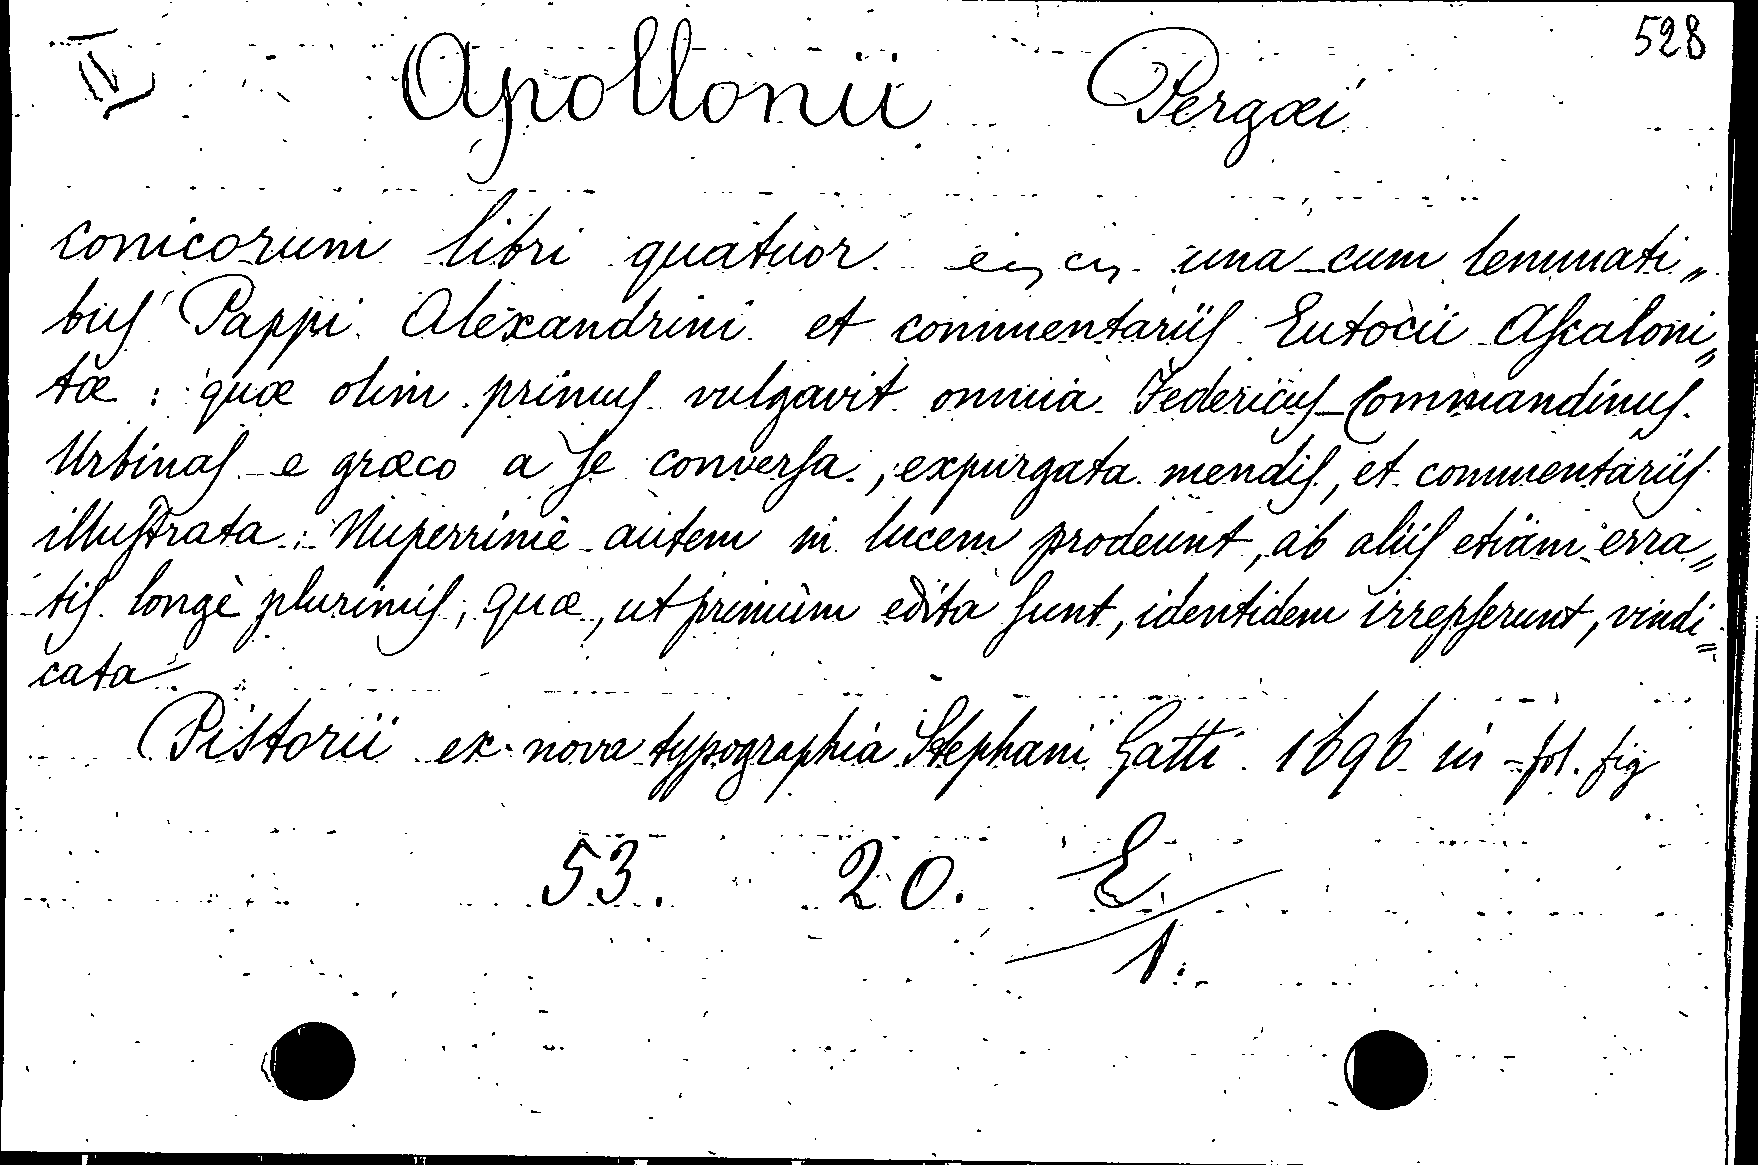 528
IV Apollonii Pergæi
conicorum libri quatuor una cum lemmati„
bus Pappi Alexandrini et commentariis Eutocii Ascaloni„
tæ : quæ olim primus vulgavit omnia Federicus Commandinus
Urbinas e græco a se conversa, expurgata mendis, et commentariis
illustrata : Nuperrimè autem in lucem prodeunt, ab aliis etiam erra„
tis longè plurimis, quæ, ut primùm edita sunt, identidem irrepserunt, vindi„
cata
Pistorii ex nova typographia Stephani Gatti 1696 in-fol. fig
53. 20. E
1.